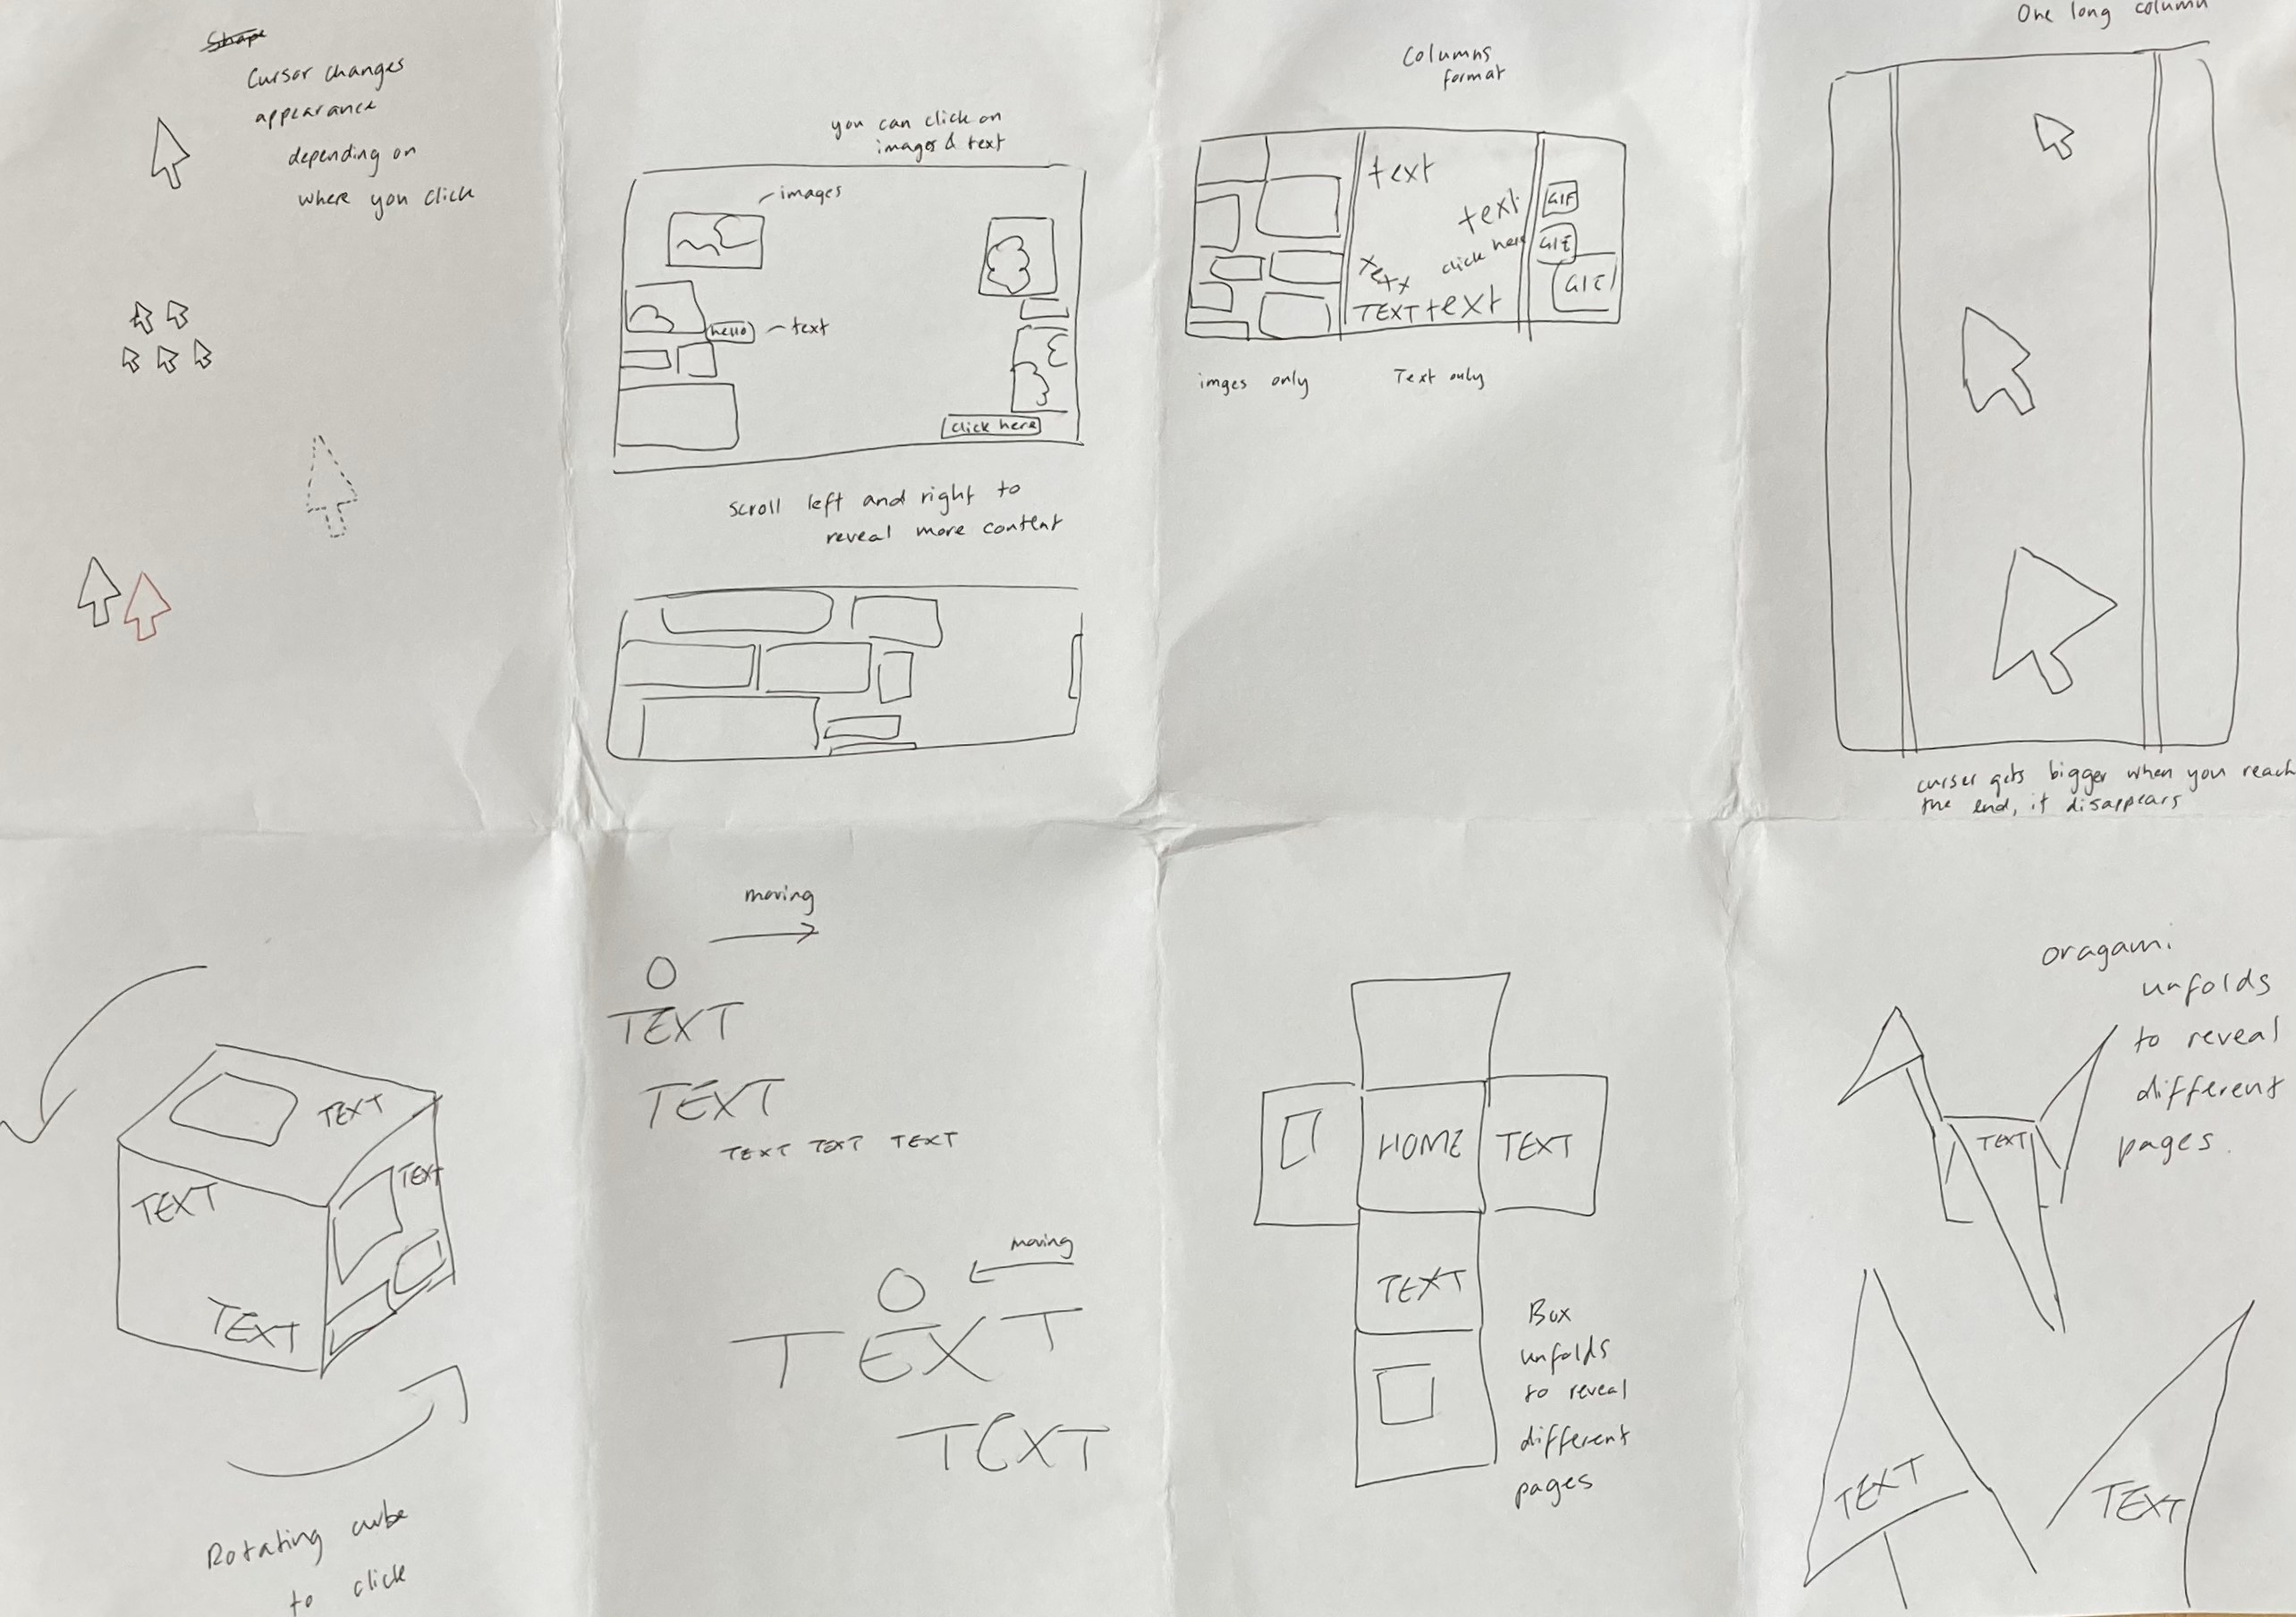 Shape
Cursor changes
appearance
depending on
where you click
you can click on
images & text
images
hello
text
click here
scroll left and right to
reveal more content
Columns
format
text
text
click here
text
TEXT text
GIF
GIF
GIF
imges only
Text only
One long column
curser gets bigger when you reach
the end, it disappears
TEXT
TEXT
TEXT
TEXT
Rotating cube
to click
moving
TEXT
TEXT
TEXT TEXT TEXT
moving
TEXT
TEXT
HOME
TEXT
TEXT
Box
unfolds
to reveal
different
pages
oragami
unfolds
to reveal
different
pages.
TEXT
TEXT
TEXT